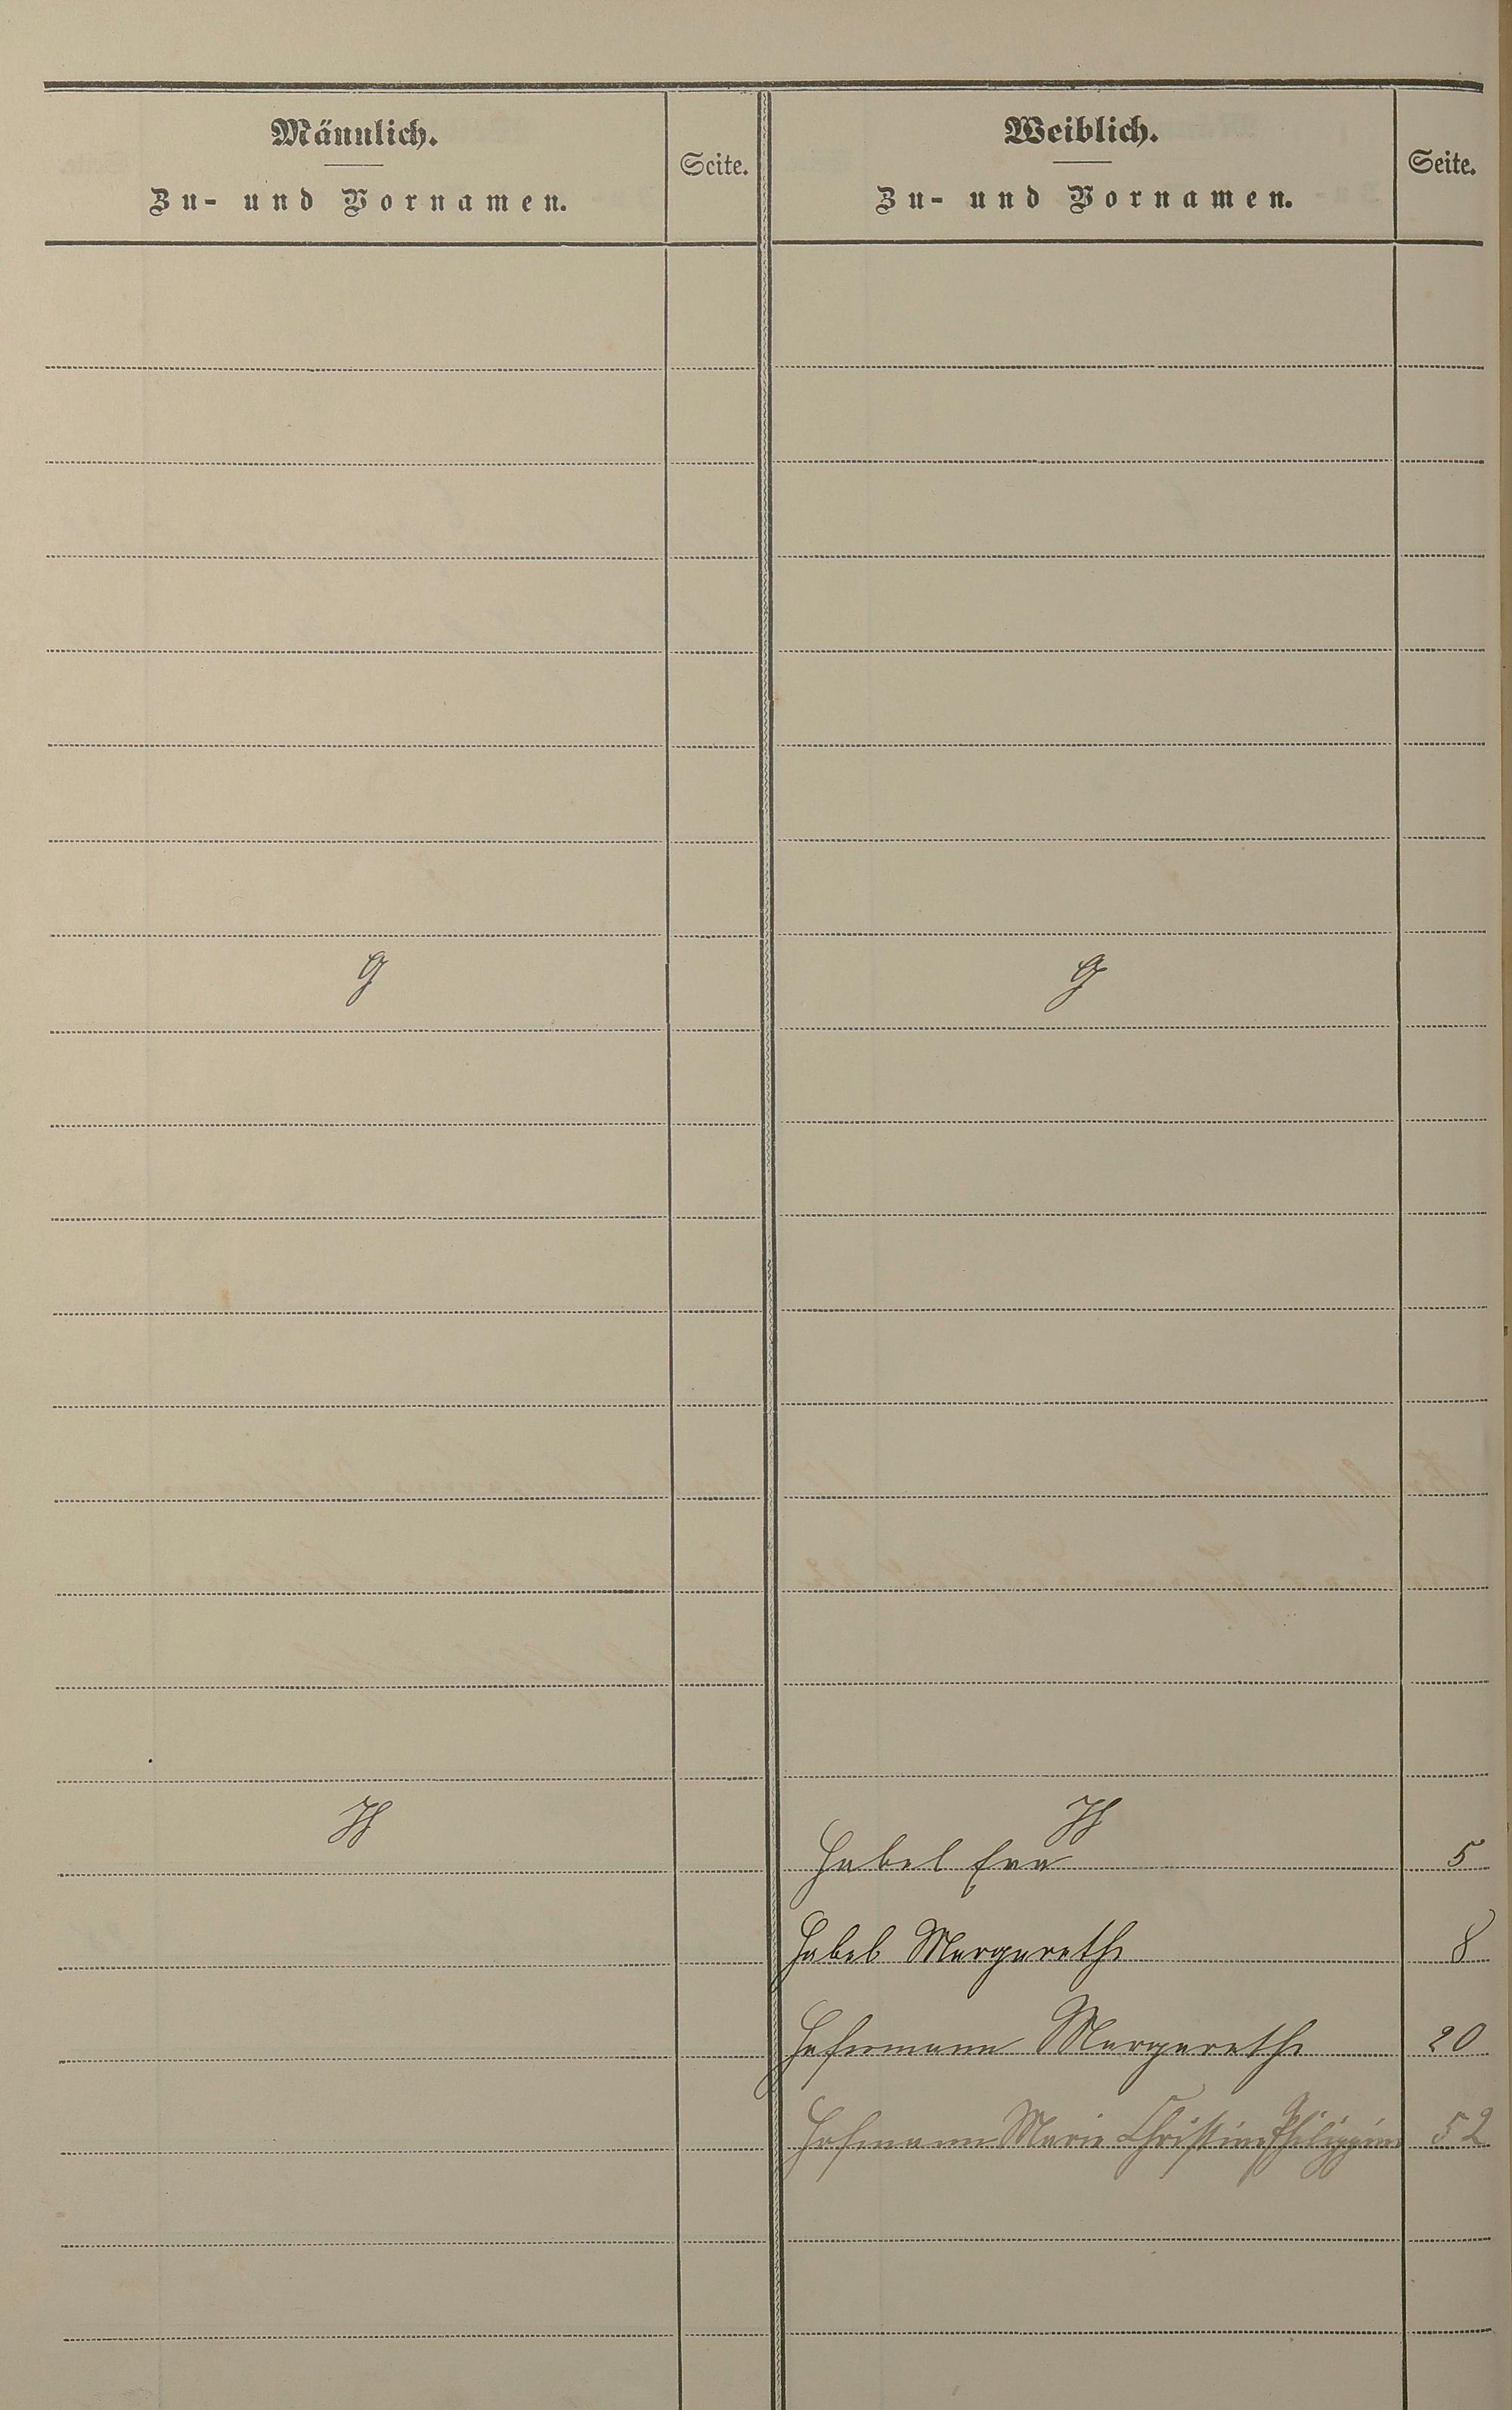 Männlich.
Zu- und Vornamen.
Seite.
Weiblich.
Zu- und Vornamen.
Seite.
G
G
H
H
Habel Eva 5
Habel Margarethe 8
Margarethe 20
Hofmann Marie Christine Philippine 52